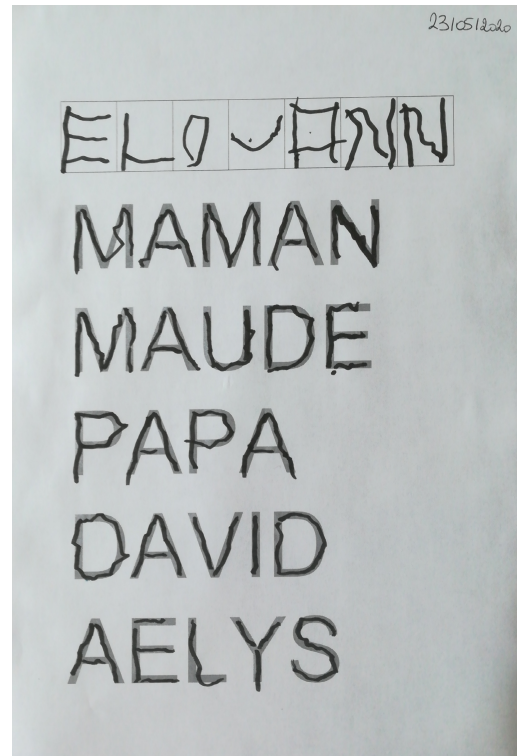 23/05/2020
ELOUANN
MAMAN
MAUDE
PAPA
DAVID
AELYS